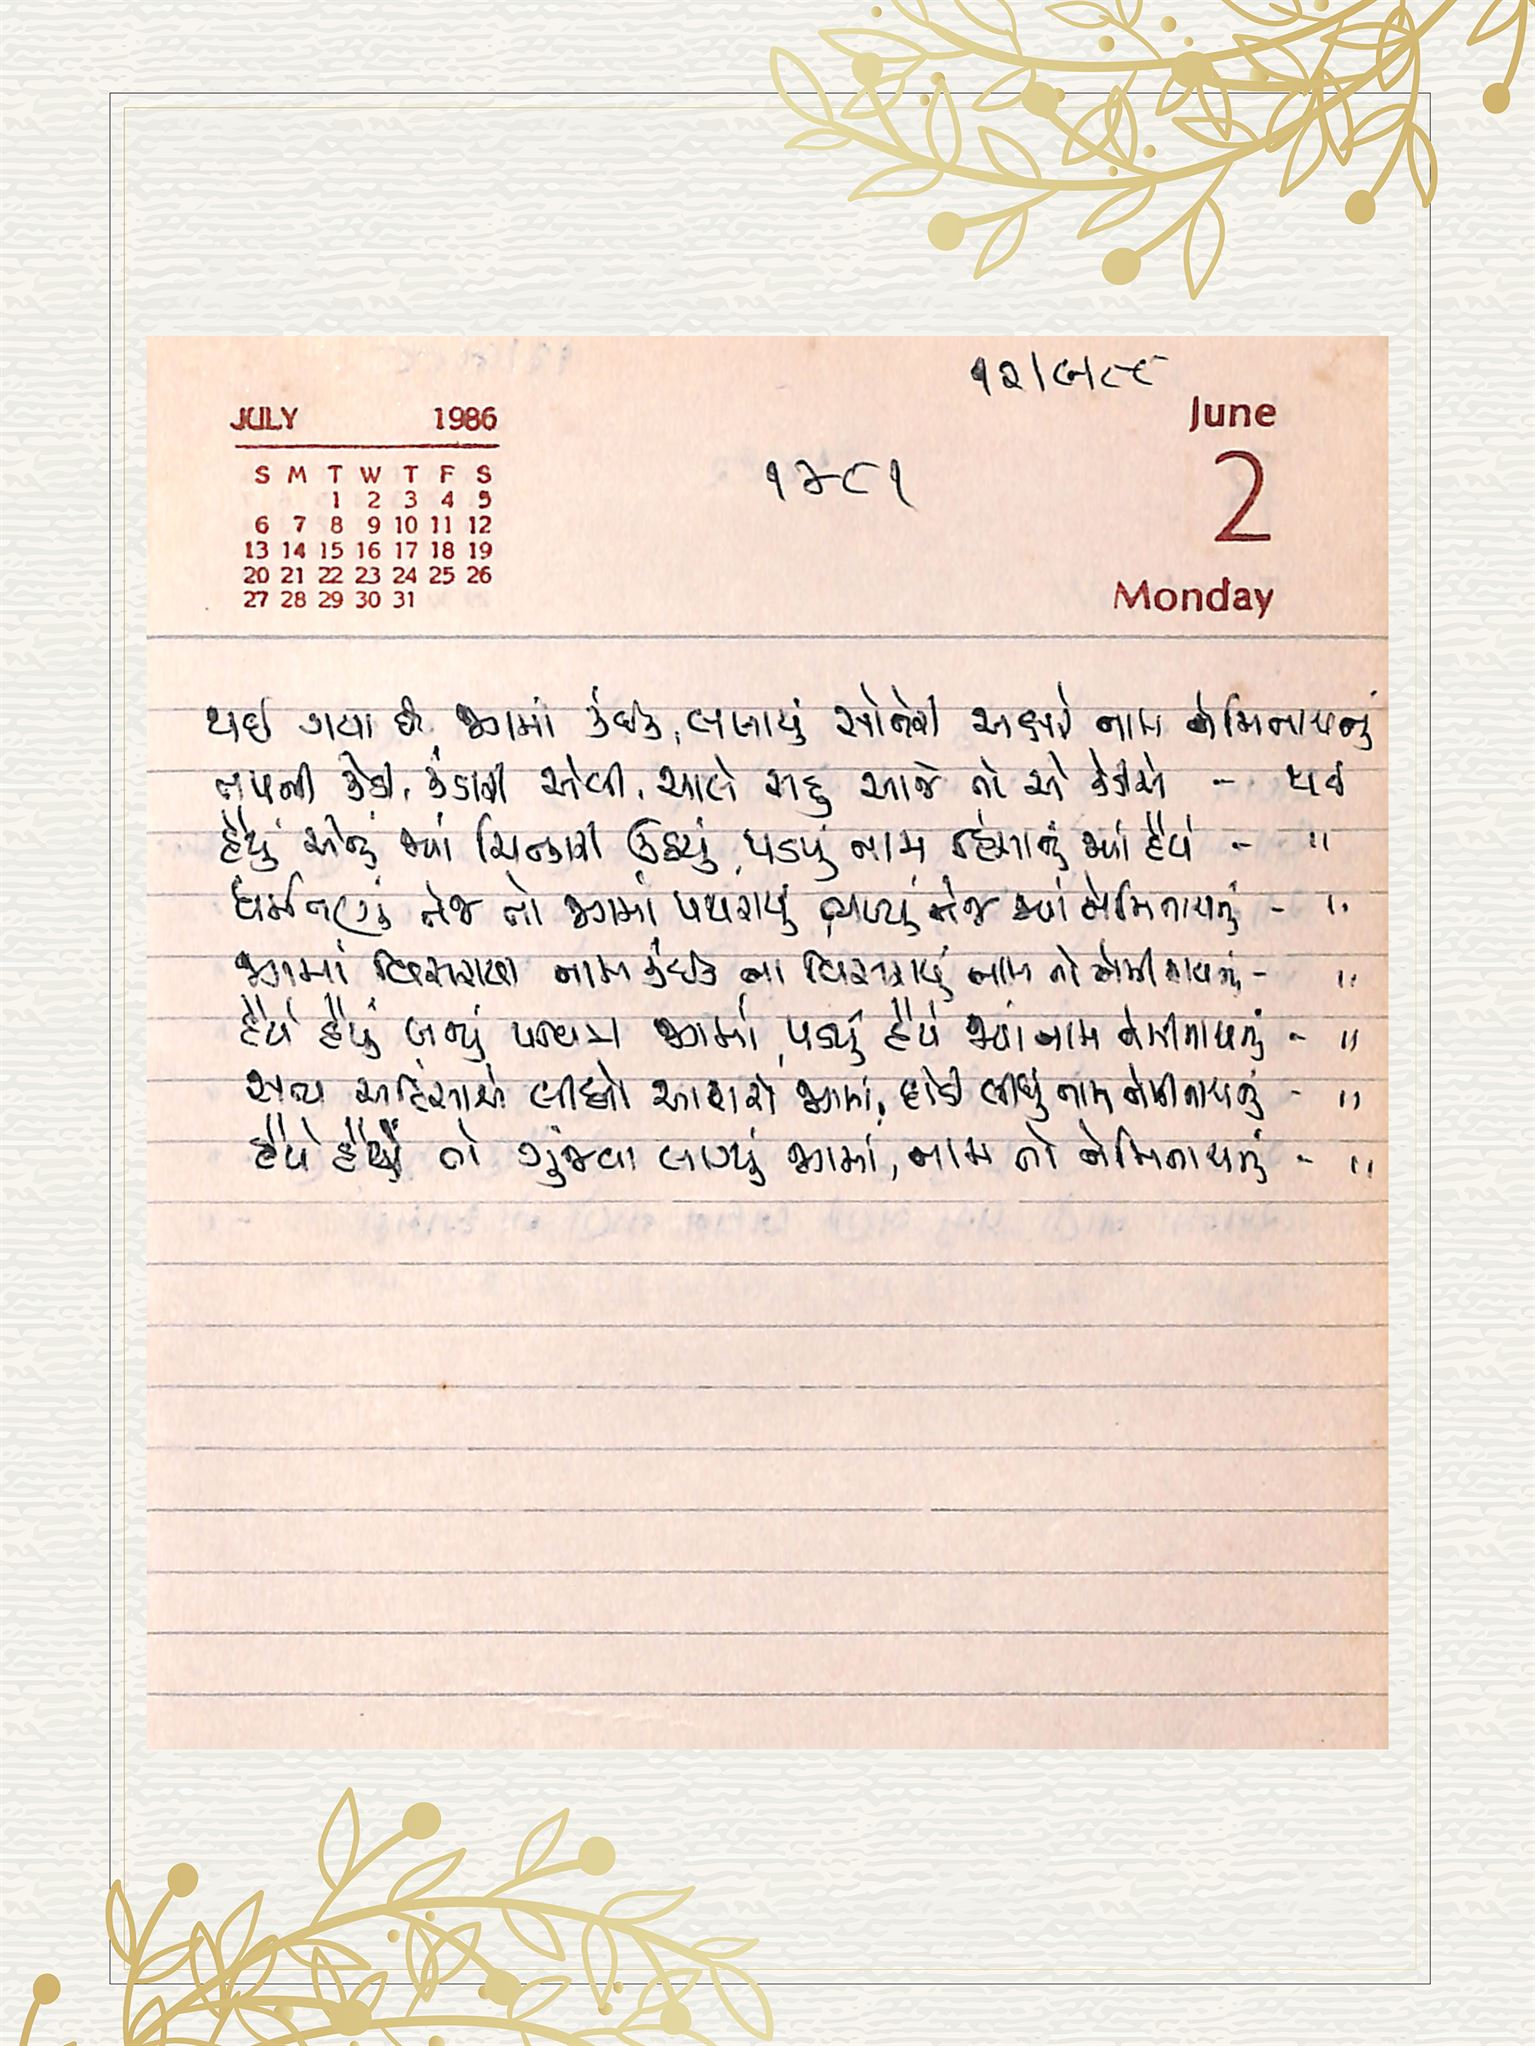 ૧૨/૬/૮૮
JULY 1986
June
૧૩૮૧
2
S M T W T F S
1 2 3 4 5
6 7 8 9 10 11 12
13 14 15 16 17 18 19
20 21 22 23 24 25 26
27 28 29 30 31
Monday
થઈ ગયા છે જગમાં કંઈક, લખાયું સોનેરી અક્ષરે નામ નેમિનાથનું
તપની કેડી, કંડારી એવી, ચાલે સહુ આજે તો એ કેડીએ - થઈ
હૈયું એનું જ્યાં ચિત્કારી ઊઠયું, પડયું નામ હિંસાનું જ્યાં હૈયે - "
ધર્મતણું તેજ તો જગમાં પથરાયું, ભળ્યું તેજ જ્યાં નેમિનાથનું - "
જગમાં વિસરાયા નામ કંઈક ના વિસરાયું નામ તો નેમીનાથનું - "
હૈયે હૈયું બન્યું પથ્થર જગમાં, પડયું હૈયે જ્યાં નામ નેમીનાથનું - "
સત્ય અહિંસાએ લીધો આશરો જગમાં, દોડી લીધું નામ નેમીનાથનું - "
હૈયે હૈયું તો ગુંજવા લાગ્યું જગમાં, નામ તો નેમિનાથનું - "